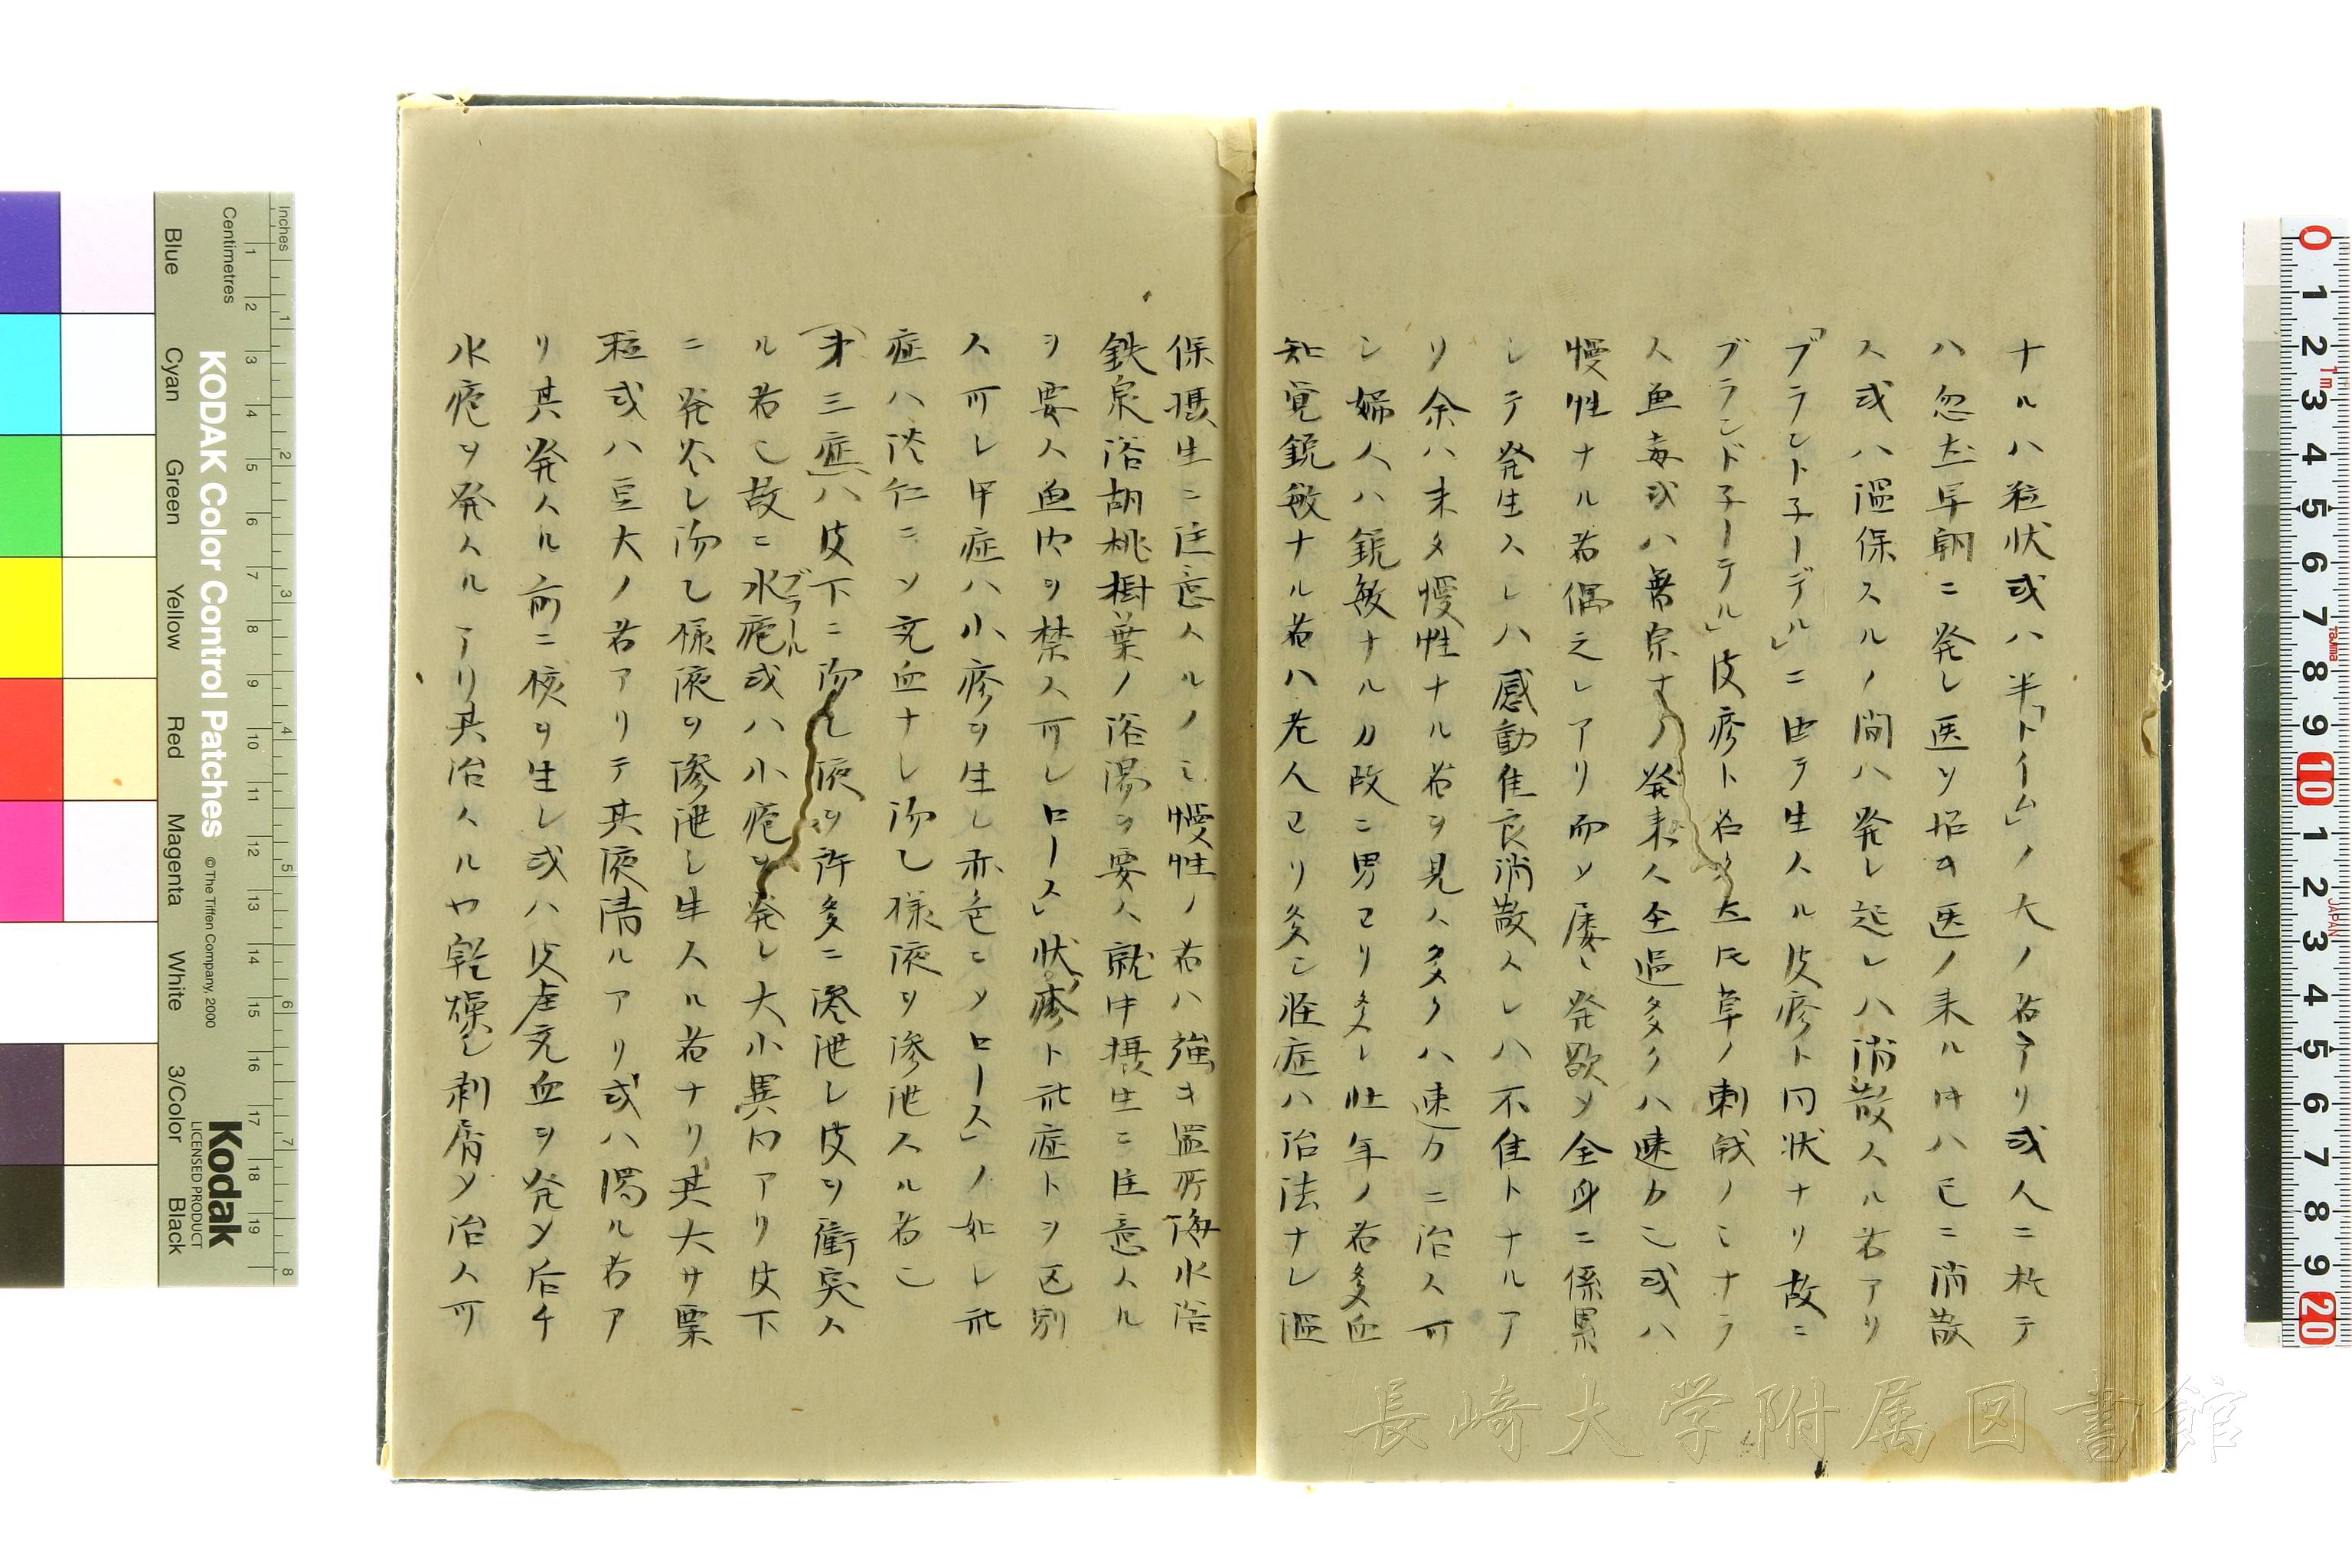 ナルハ粒状或ハ半「トイム」ノ大ノ者アリ或人ニ於テ
ハ忽然早朝ニ発シ医ヲ招キ医ノ来ル時ハ已ニ消散
ス或ハ温保スルノ間ハ発シ起レハ消散スル者アリ
「ブランドネーデル」ニ由テ生スル皮疹ト同状ナリ故ニ
ブランドネーテル」皮疹ト名ク
ス魚毒或ハ
慢性ナル者偶之レアリ而シ屡々発欲シ全身ニ係累
シテ発生スレハ感動佳良消散スレハ不佳トナルア
リ余ハ未タ慢性ナル者ヲ見ス多クハ速カニ治ス可
シ婦人ハ鋭敏ナルカ故ニ男ヨリ多シ壮年ノ者多血
知覚鋭敏ナル者ハ老人ヨリ多シ
症ハ治法ナシ温
保摂生ニ注意スルノミ慢性ノ者ハ強キ
海水浴
鉄泉浴胡桃樹葉ノ浴湯ヲ要ス就中摂生ニ注意スル
ヲ要ス魚肉ヲ禁ス可シロース」状疹ト此症トヲ区別
ス可シ甲症ハ小疹ヲ生シ赤色ニシロース」ノ如シ此
症ハ淡
ニシ充血ナシ沕乙様液ヲ滲泄スル者
第三症ハ皮下ニ沕乙液ヲ許多ニ滲泄シ皮ヲ衝突ス
ル者
故ニ水疱ブラール或ハ小疱ヲ発シ大小異同アリ皮下
ニ発
シ沕乙様液ヲ滲泄シ生スル者ナリ其大サ粟
粒或ハ豆大ノ者アリテ其液清ルアリ或ハ濁ル者ア
リ其発スル前ニ核ヲ生シ或ハ皮
充血ヲ発シ后チ
水疱ヲ発スルアリ其治スルヤ乾燥シ剥屑シ治ス可
KODAK Color Control Patches
© The Tiffen Company, 2000
Kodak
LICENSED PRODUCT
Inches
Centimetres
Blue
Cyan
Green
Yellow
Red
Magenta
White
3/Color
Black
1 2 3 4 5 6 7 8 9 10 11 12 13 14 15 16 17 18 19
1 2 3 4 5 6 7 8
0 1 2 3 4 5 6 7 8 9 10 1 2 3 4 5 6 7 8 9 20
1m
Tajima
JAPAN
長崎大学附属図書館